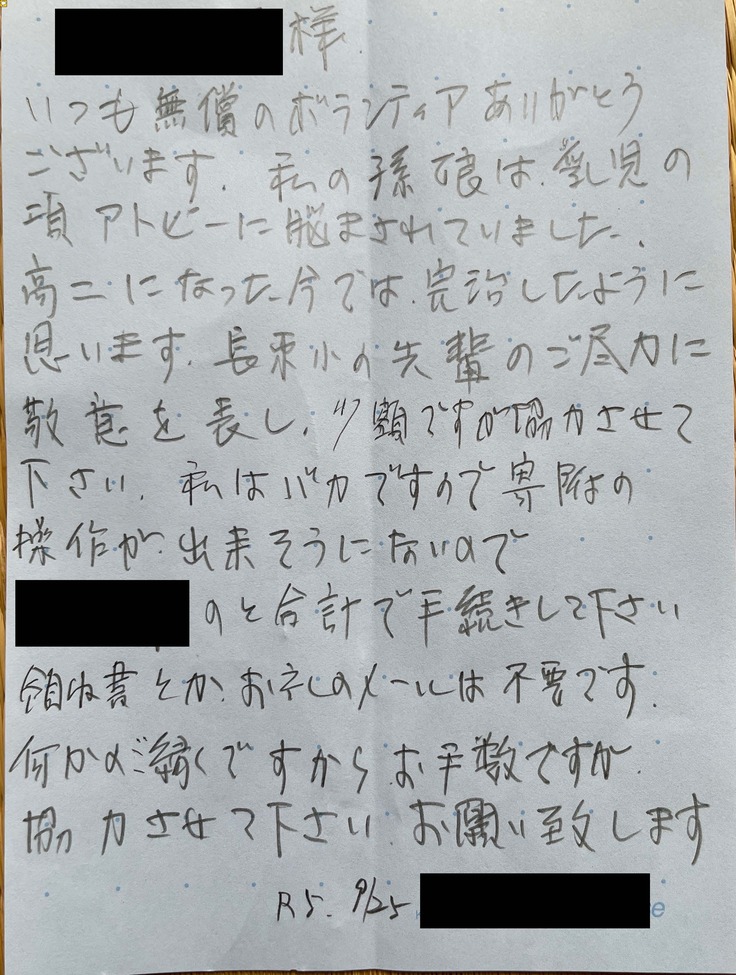 様
いつも無償のボランティアありがとう
ございます. 私の孫娘は.乳児の
頃アトピーに悩まされていました.
高二になった今では.完治したように
思います. 長来小の先輩のご尽力に
敬意を表し.少額ですが協力させて
下さい. 私はバカですので寄附の
操作が出来そうにないので
のと合計で手続きして下さい
領収書とか.お礼のメールは不要です.
何かのご縁ですからお手数ですが.
協力させて下さい.お願い致します
R5. 9/25